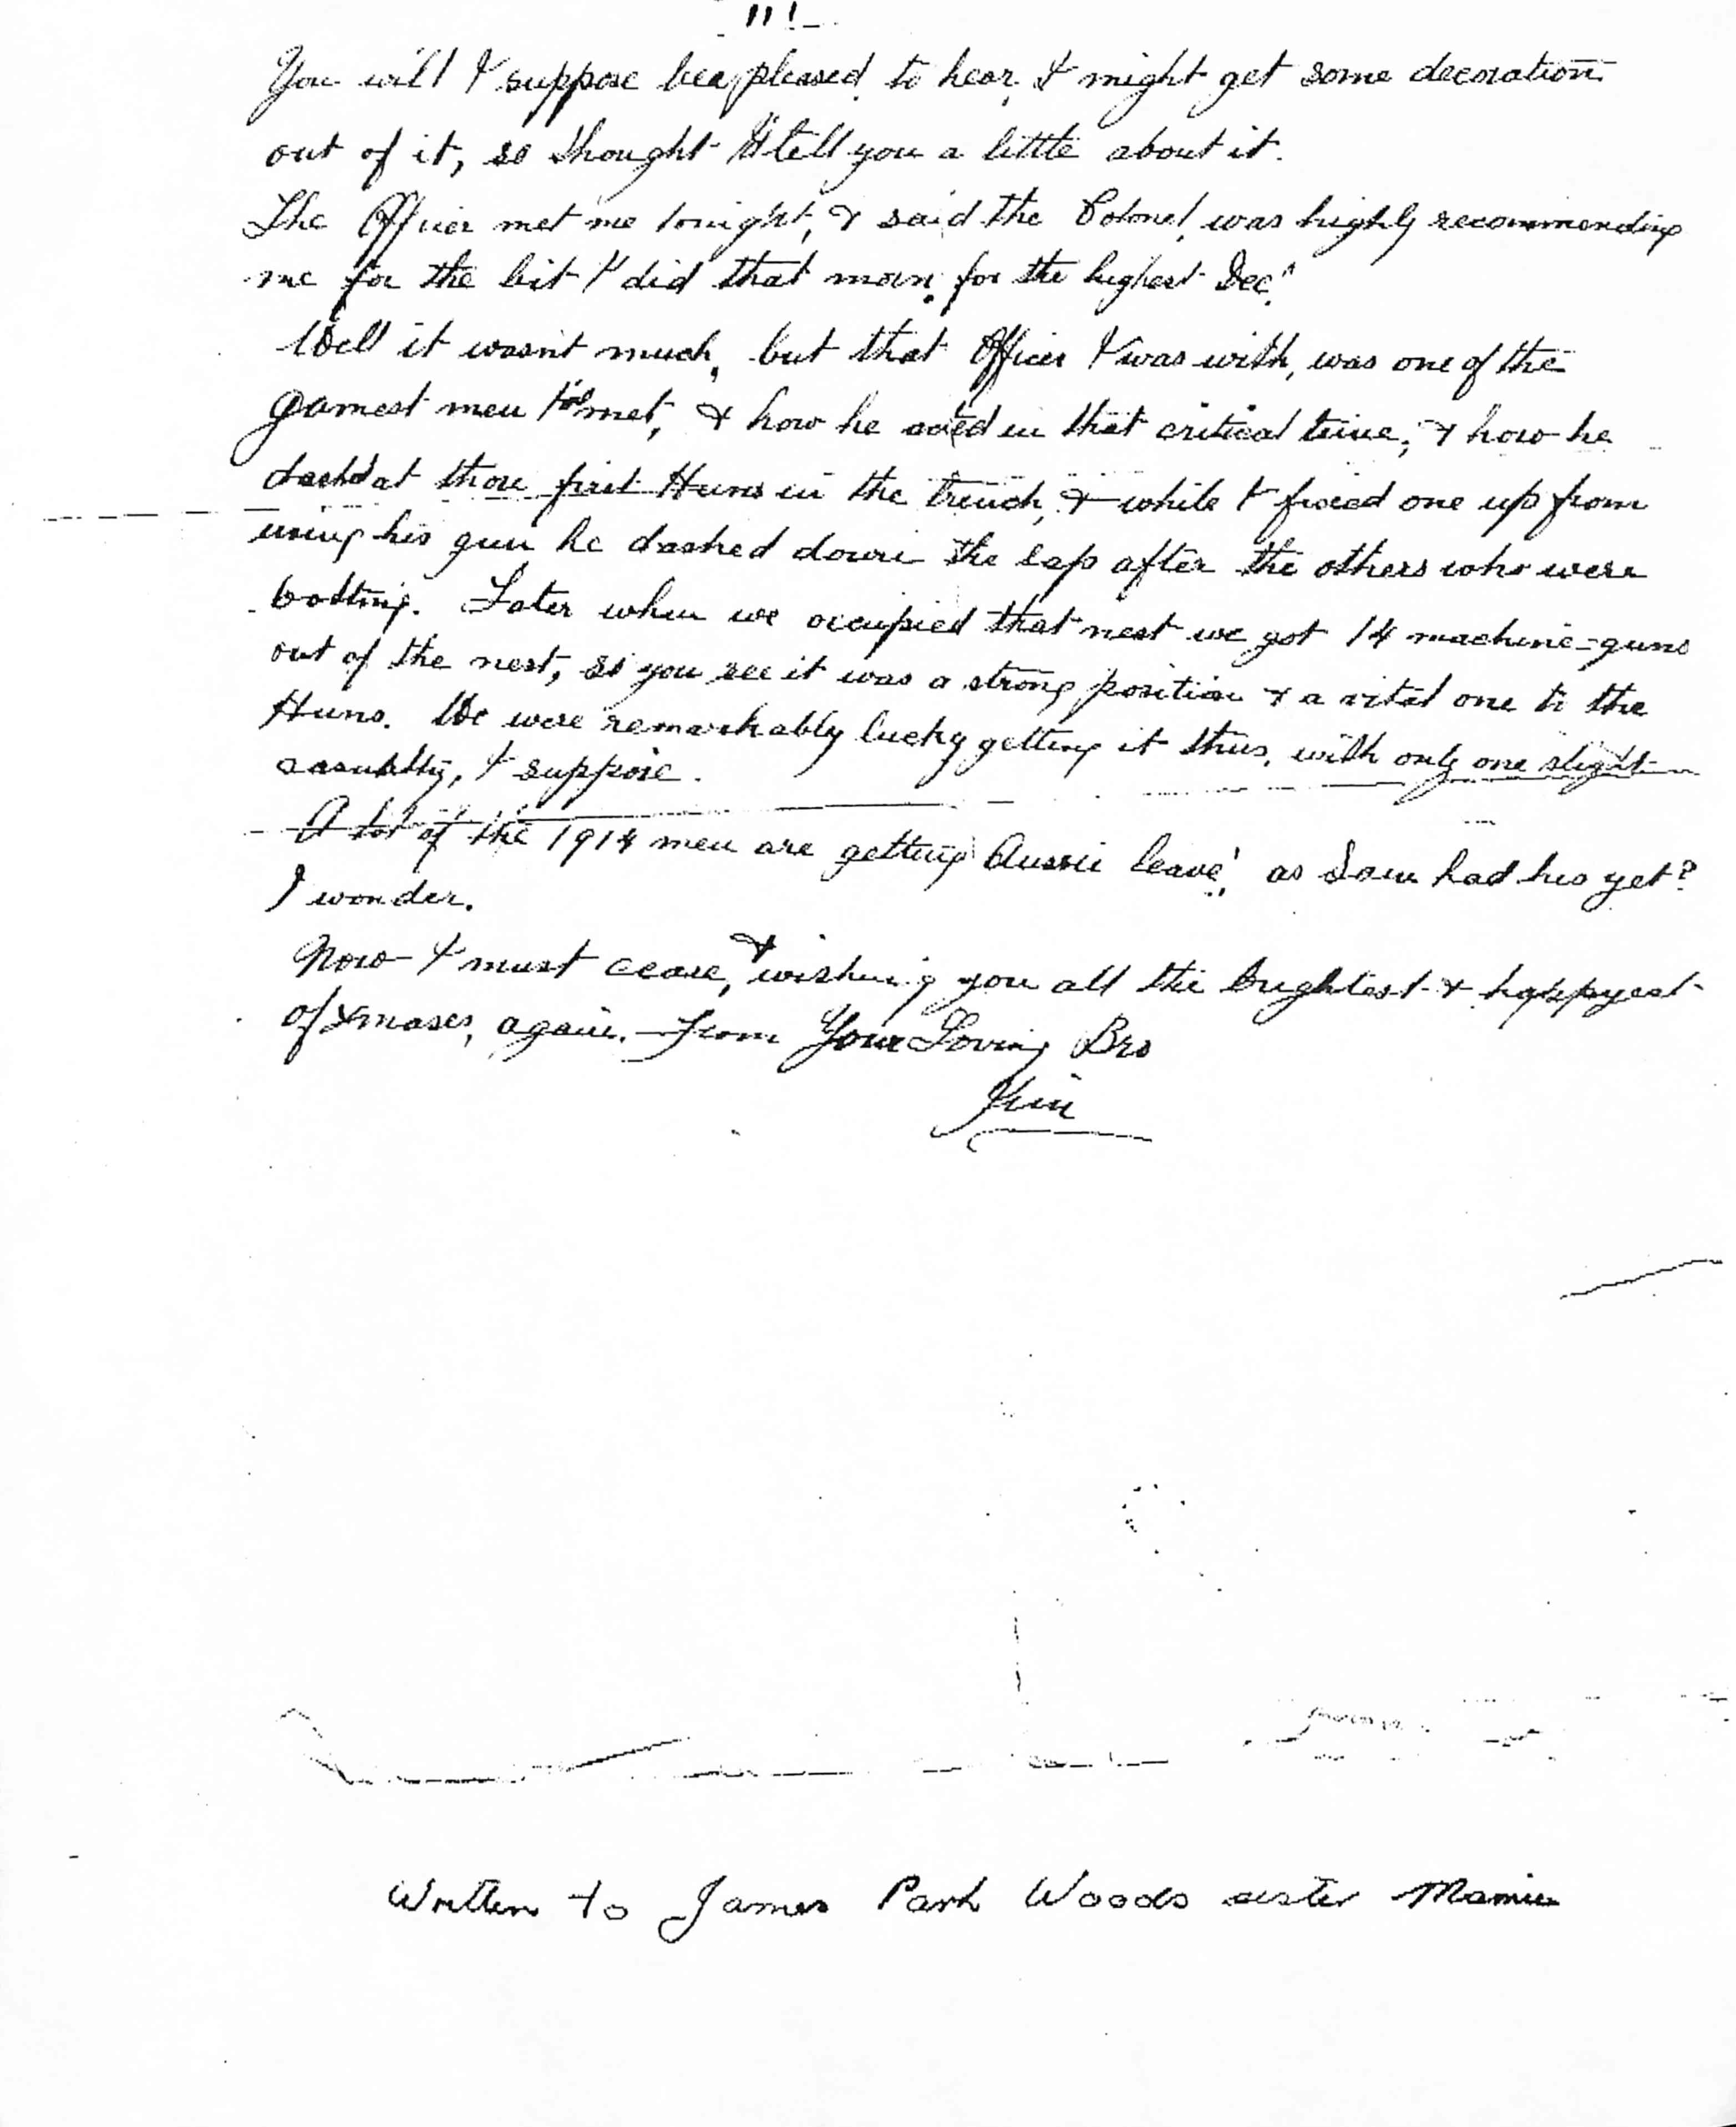 111
You will I suppose be pleased to hear, I might get some decoration
out of it, so thought I'd tell you a little about it.
The Officer met me tonight, & said the Colonel, was highly recommending
me for the bit I did that morn. for the highest Dec.n
Well it wasn't much, but that Officer I was with, was one of the
gamest men I've met, & how he acted in that critical time, & how he
dash'd at those first Huns in the trench, & while I fixed one up from
using his gun he dashed down the sap after the others who were
bolting. Later when we occupied that nest we got 14 machine-guns
out of the nest, so you see it was a strong position & a vital one to the
Huns. We were remarkably lucky getting it thus, with only one slight
casualty, I suppose.
A lot of the 1914 men are getting Aussie leave, as Sam had his yet?
I wonder.
Now I must cease, & wishing you all the brightest & happyest
of Xmases, again. From Your Loving Bro
Jim
Written to James Park Woods sister Mamie